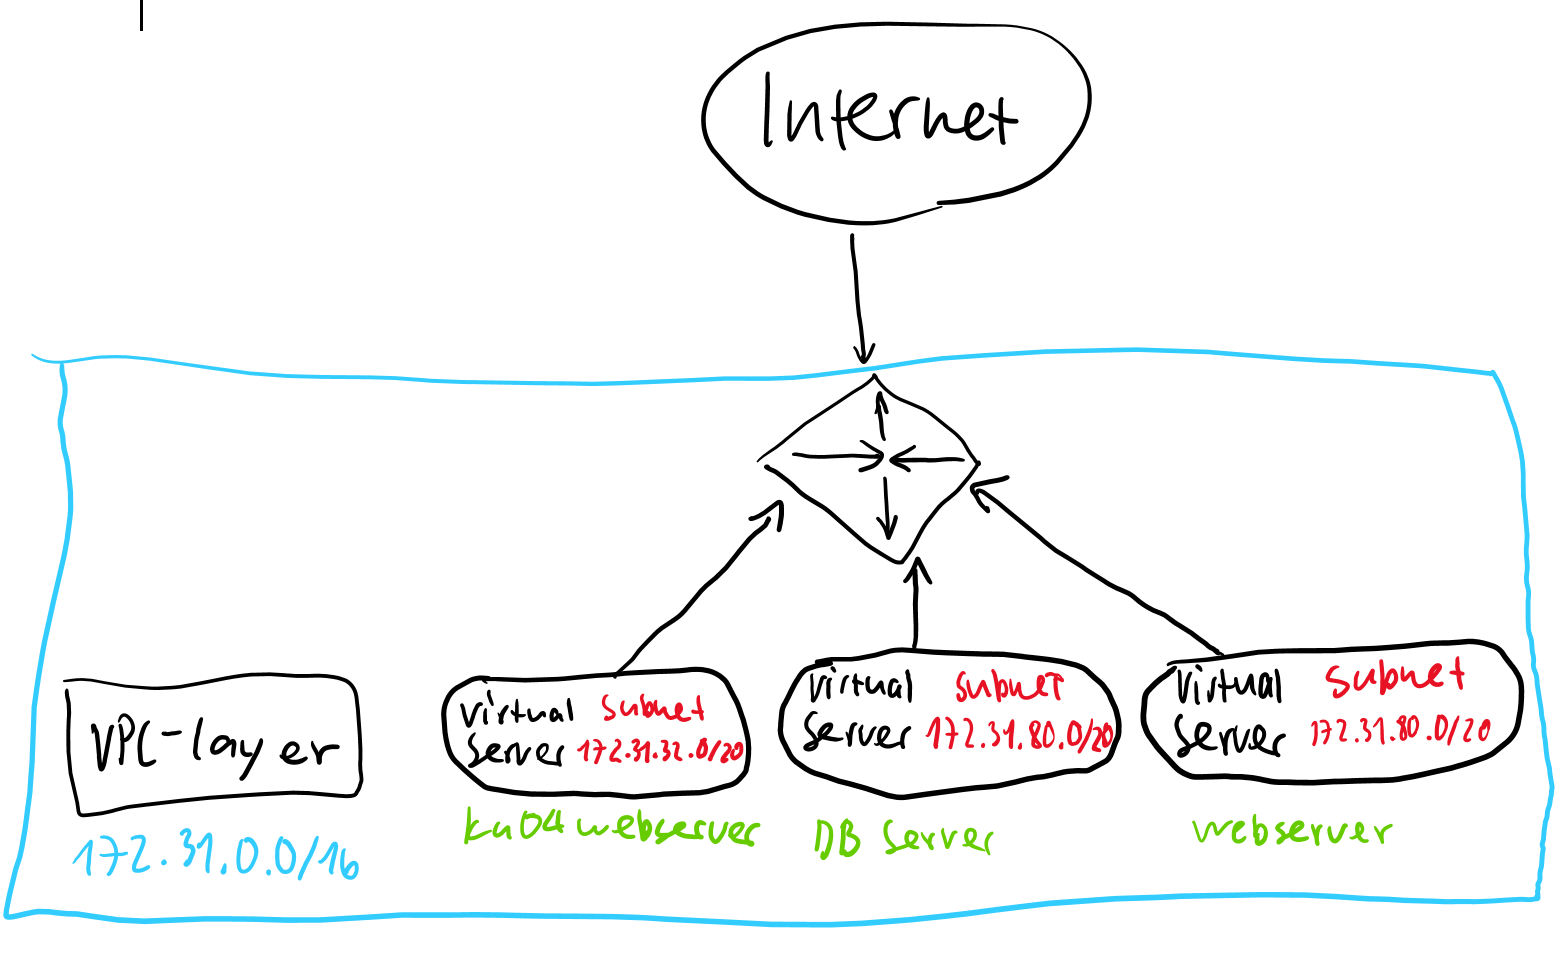 Internet
VPC-layer
172.31.0.0/16
Virtual Subnet
Server 172.31.32.0/20
kn04 webserver
Virtual Subnet
Server 172.31.80.0/20
DB Server
Virtual Subnet
Server 172.31.80.0/20
webserver